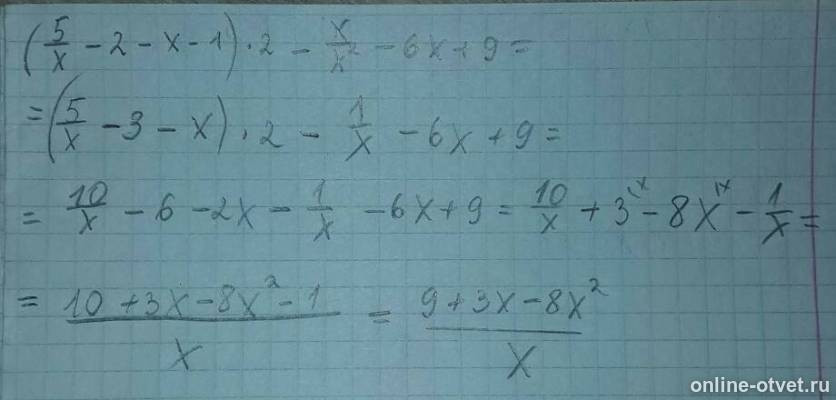 (5/x - 2 - x - 1) · 2 - x/x² - 6x + 9 =
= (5/x - 3 - x) · 2 - 1/x - 6x + 9 =
= 10/x - 6 - 2x - 1/x - 6x + 9 = 10/x + 3^(1x) - 8x^(1x) - 1/x =
= (10 + 3x - 8x² - 1)/x = (9 + 3x - 8x²)/x
online-otvet.ru